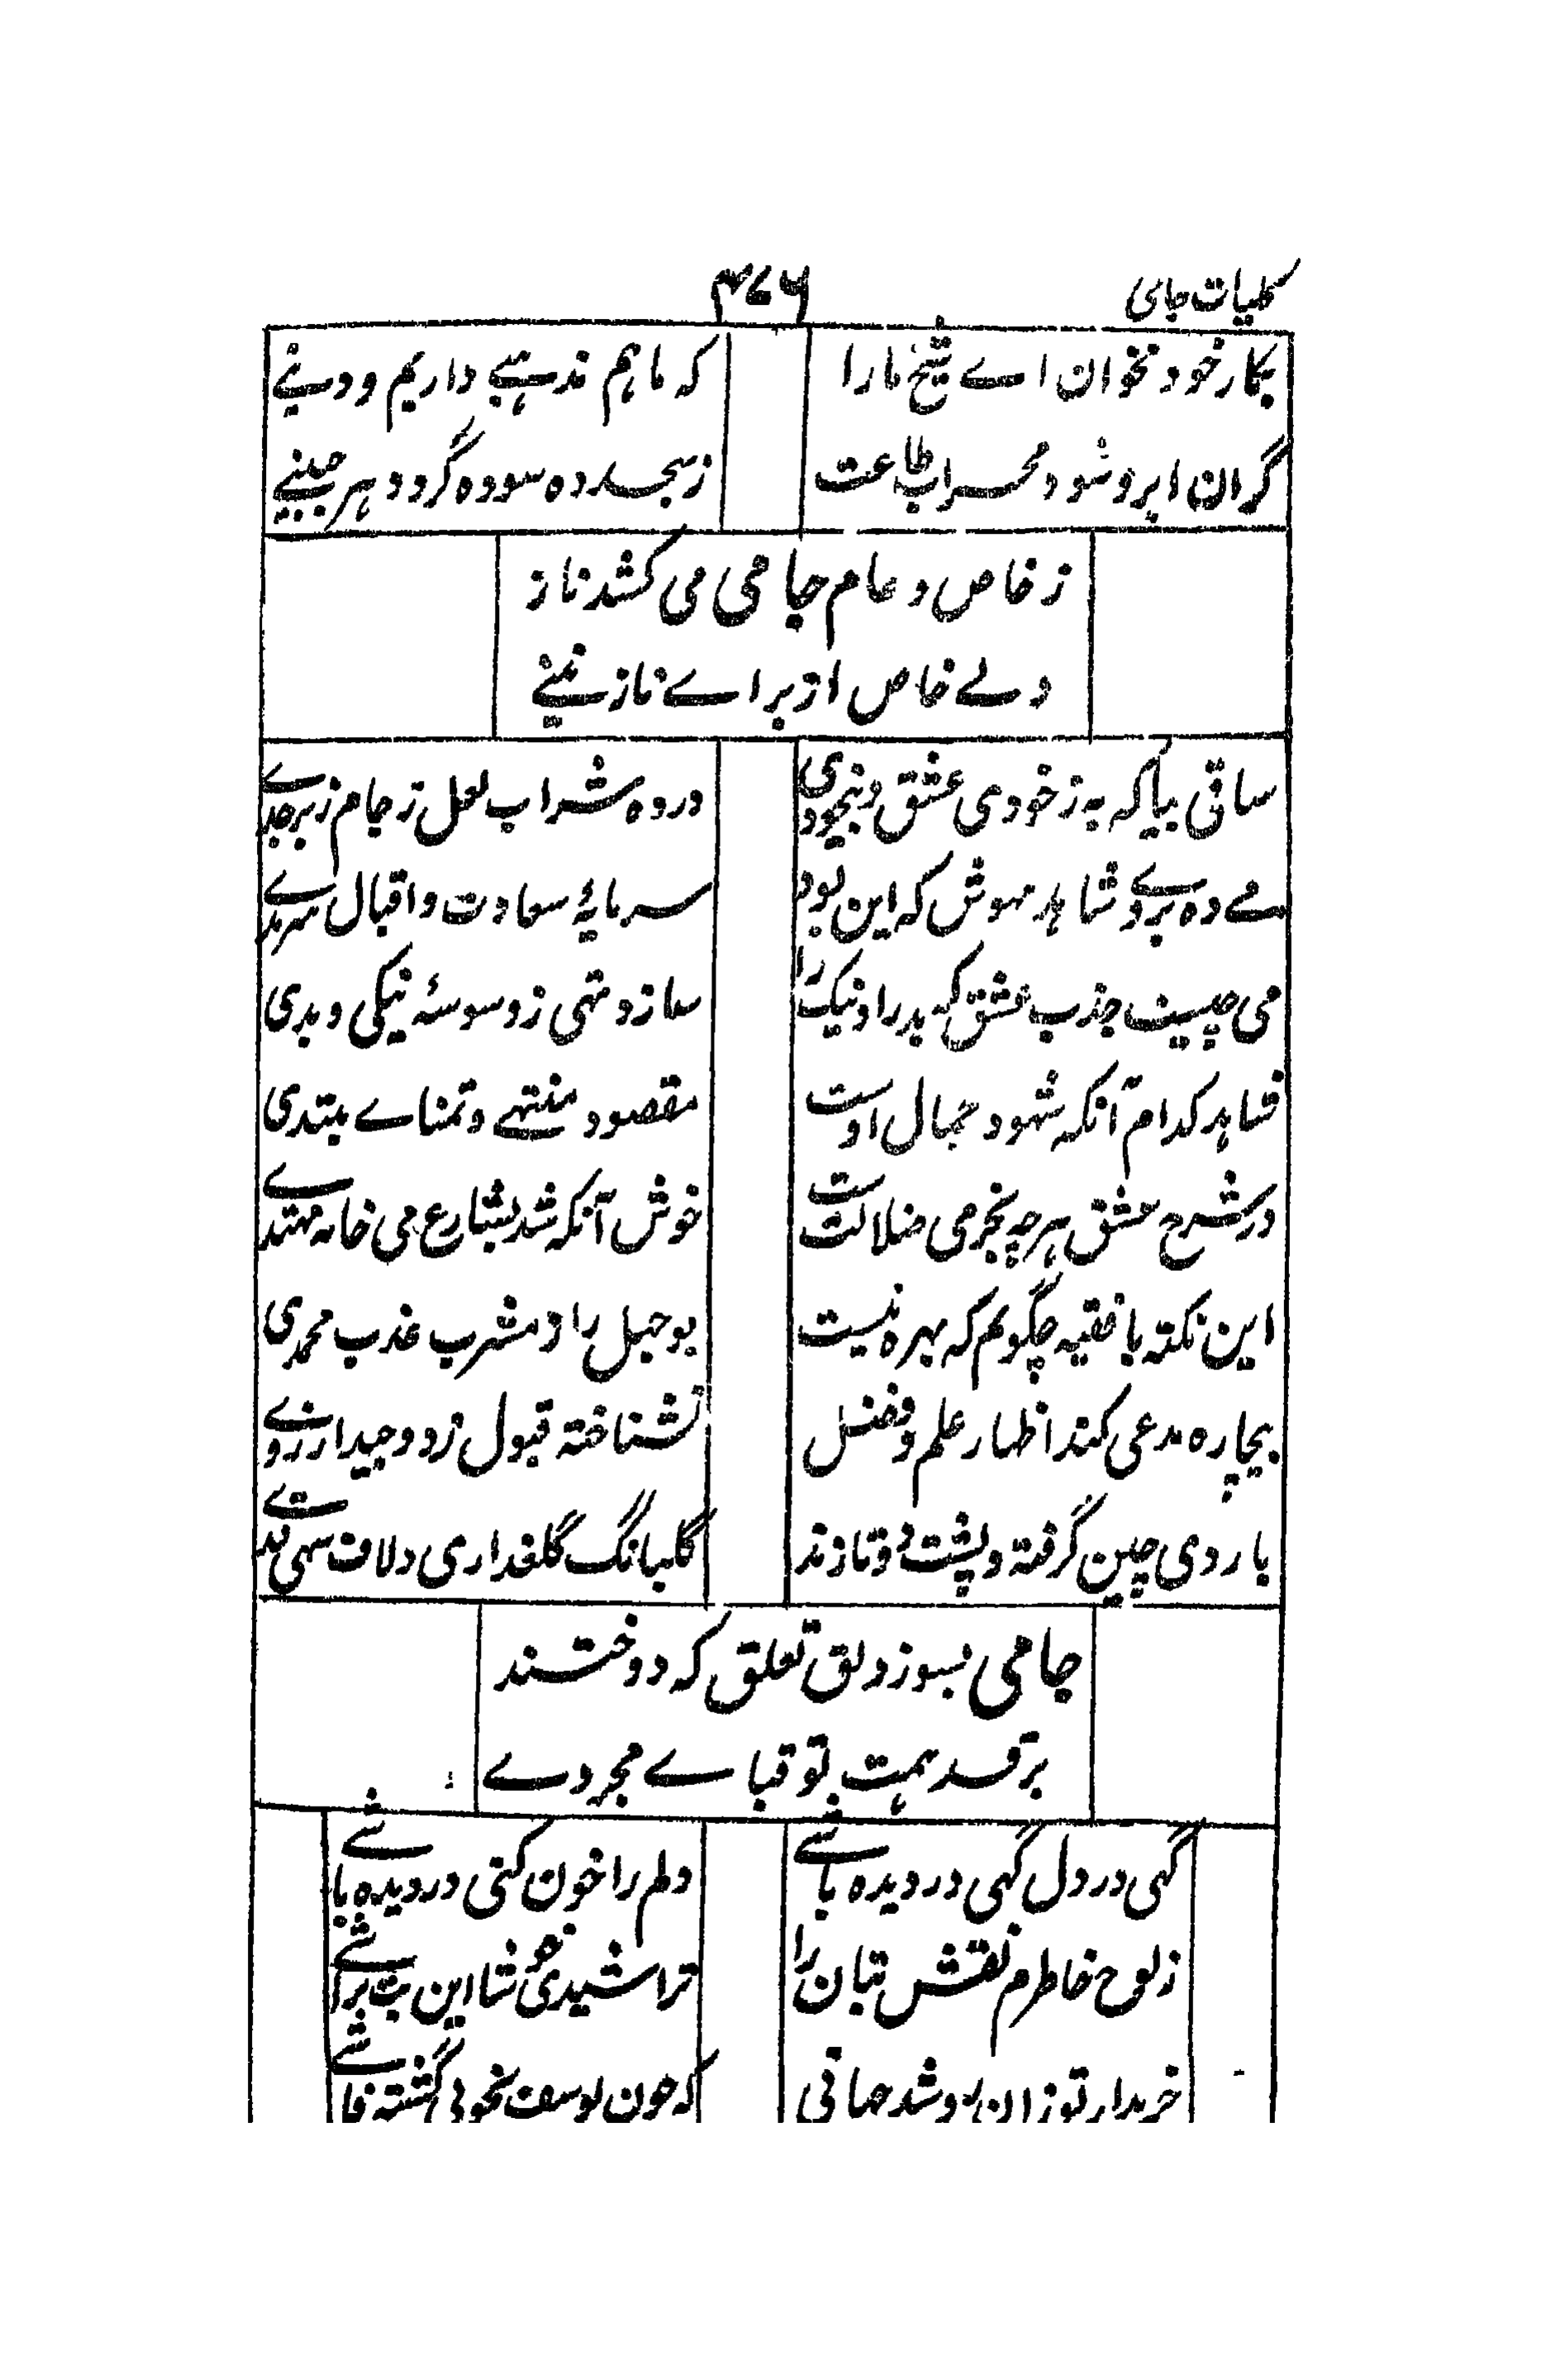 کلیات جامی
۴۷۶
بکار خود مخوان اے شیخ مارا
که ما هم مذهبے داریم و دینے
گر ان ابرو شود محراب طاعت
ز سجده سوده گردد هر جبینے
ز خاص و عام جامی می کشد ناز
ولے خاص از براے نازنینے
ساقی بیا که به ز خودی عشق و بیخودی
درده شراب لعل ز جام زبرجدے
مے ده بروے شاهد مهوش که این بود
سرمایهٔ سعادت و اقبال سرمدے
می چیست جذب عشق که بد را و نیک را
سازد تهی ز وسوسهٔ نیکی و بدی
شاهد کدام آنکه شهود جمال اوست
مقصود منتهے و تمناے مبتدی
در شرع عشق هرچه بجز می ضلالت ست
خوش آنکه شد بشارع می خانه مهتدے
این نکته با فقیه چگویم که بهره نیست
بوجهل را ز مشرب عذب محمدی
بیچاره مدعی کند اظهار علم و فضل
نشناخته قبول ز رد و جید از ردے
با روی چین گرفته و پشت دوتا زند
گلبانگ گلعذاری و لاف سهی قدے
جامی بسوز دلق تعلق که دوختند
بر قد همت تو قباے مجردے
گهی در دل گهی در دیده باشے
دلم را خون کنی در دیده باشے
ز لوح خاطرم نقش بتان را
تراشیدی خوشا این بت تراشے
خریدار تو زان رو شد جامی
که چون یوسف بخوبی گشته فاشے